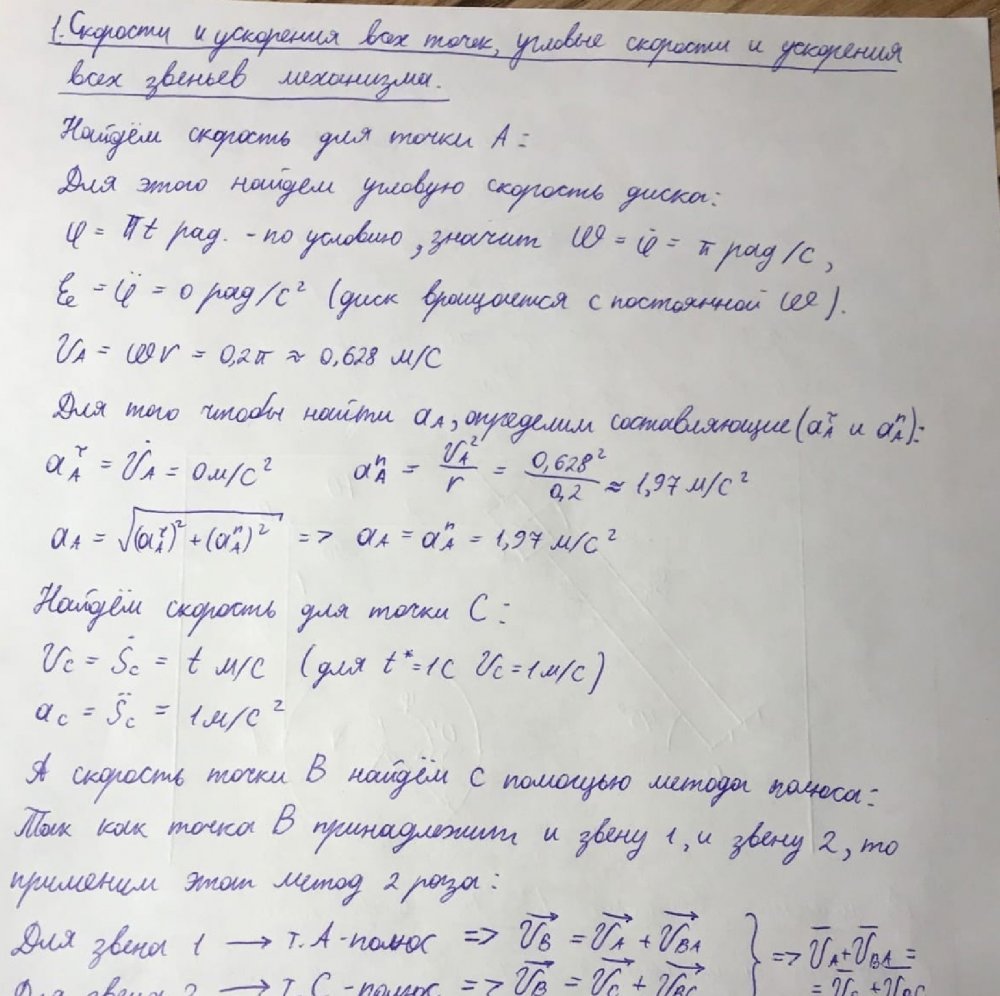 1. Скорости и ускорения всех точек, угловые скорости и ускорения
всех звеньев механизма.
Найдём скорость для точки A:
Для этого найдем угловую скорость диска:
φ = πt рад. - по условию, значит ω = φ̇ = π рад/с,
εe = φ̈ = 0 рад/с² (диск вращается с постоянной ω).
VA = ωr = 0,2π ≈ 0,628 м/с
Для того чтобы найти aA, определим составляющие (aAτ и aAn):
aAτ = V̇A = 0 м/с² aAn = VA²/r = 0,628²/0,2 ≈ 1,97 м/с²
aA = √((aAτ)² + (aAn)²) => aA = aAn = 1,97 м/с²
Найдём скорость для точки C:
VC = Ṡc = t м/с (для t* = 1с VC = 1 м/с)
aC = S̈c = 1 м/с²
А скорость точки B найдём с помощью метода полюса:
Так как точка B принадлежит и звену 1, и звену 2, то
применим этот метод 2 раза:
Для звена 1 → т. A - полюс => V⃗B = V⃗A + V⃗BA } => V̅A + V̅BA =
Для звена 2 → т. C - полюс => V⃗B = V⃗C + V⃗BC = V̅C + V̅BC